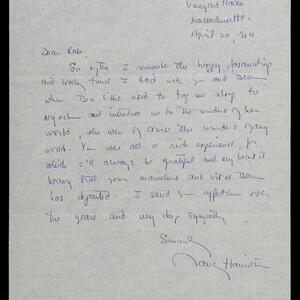 Vineyard Haven
Massachusetts
April 20, 1964
Dear Ross,
So often I remember the happy, fascinating
and lovely times I had with you and
when used to tag me along to
and introduce me to the wonders of her
world, she were of course the wonders of any
world. You were all a rich experience, for
which I'll always be grateful and my heart is
heavy that your marvelous and vital
has departed. I send you affection over
the years and my deep sympathy.
Hamilton